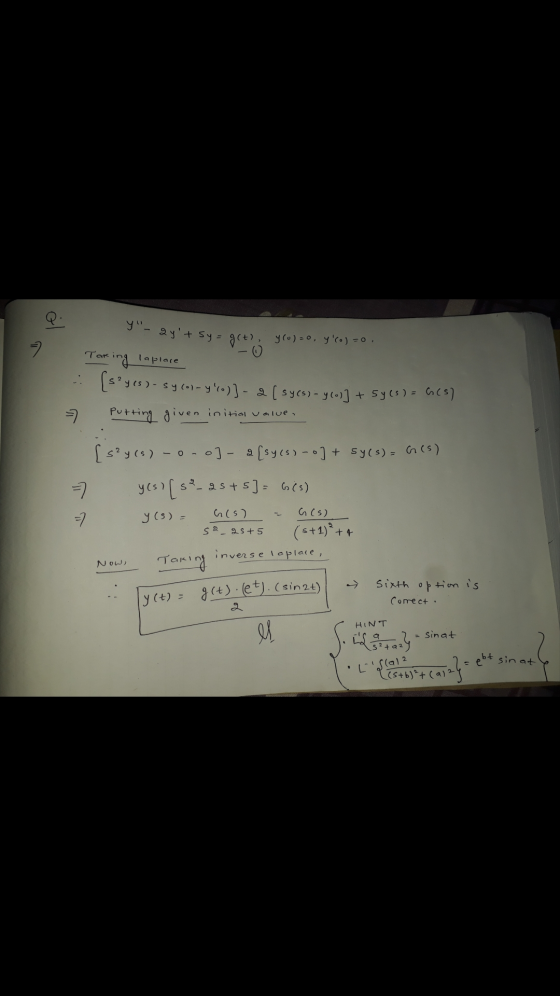 Q.
y'' - 2y' + 5y = g(t), y(0)=0, y'(0)=0.
⇒ - (1)
Taking laplace
∴ [s²y(s) - sy(0) - y'(0)] - 2[sy(s) - y(0)] + 5y(s) = G(s)
⇒ Putting given initial value.
∴
[s²y(s) - 0 - 0] - 2[sy(s) - 0] + 5y(s) = G(s)
⇒ y(s)[s² - 2s + 5] = G(s)
⇒ y(s) = G(s)/(s² - 2s + 5) = G(s)/((s+1)² + 4)
Now, Taking inverse laplace,
∴ y(t) = g(t)·(e^t)·(sin2t)/2 → Sixth option is
correct.
HINT
• L⁻¹{a/(s²+a²)} = sinat
• L⁻¹{(a)²/((s+b)²+(a)²)} = e^bt sin at